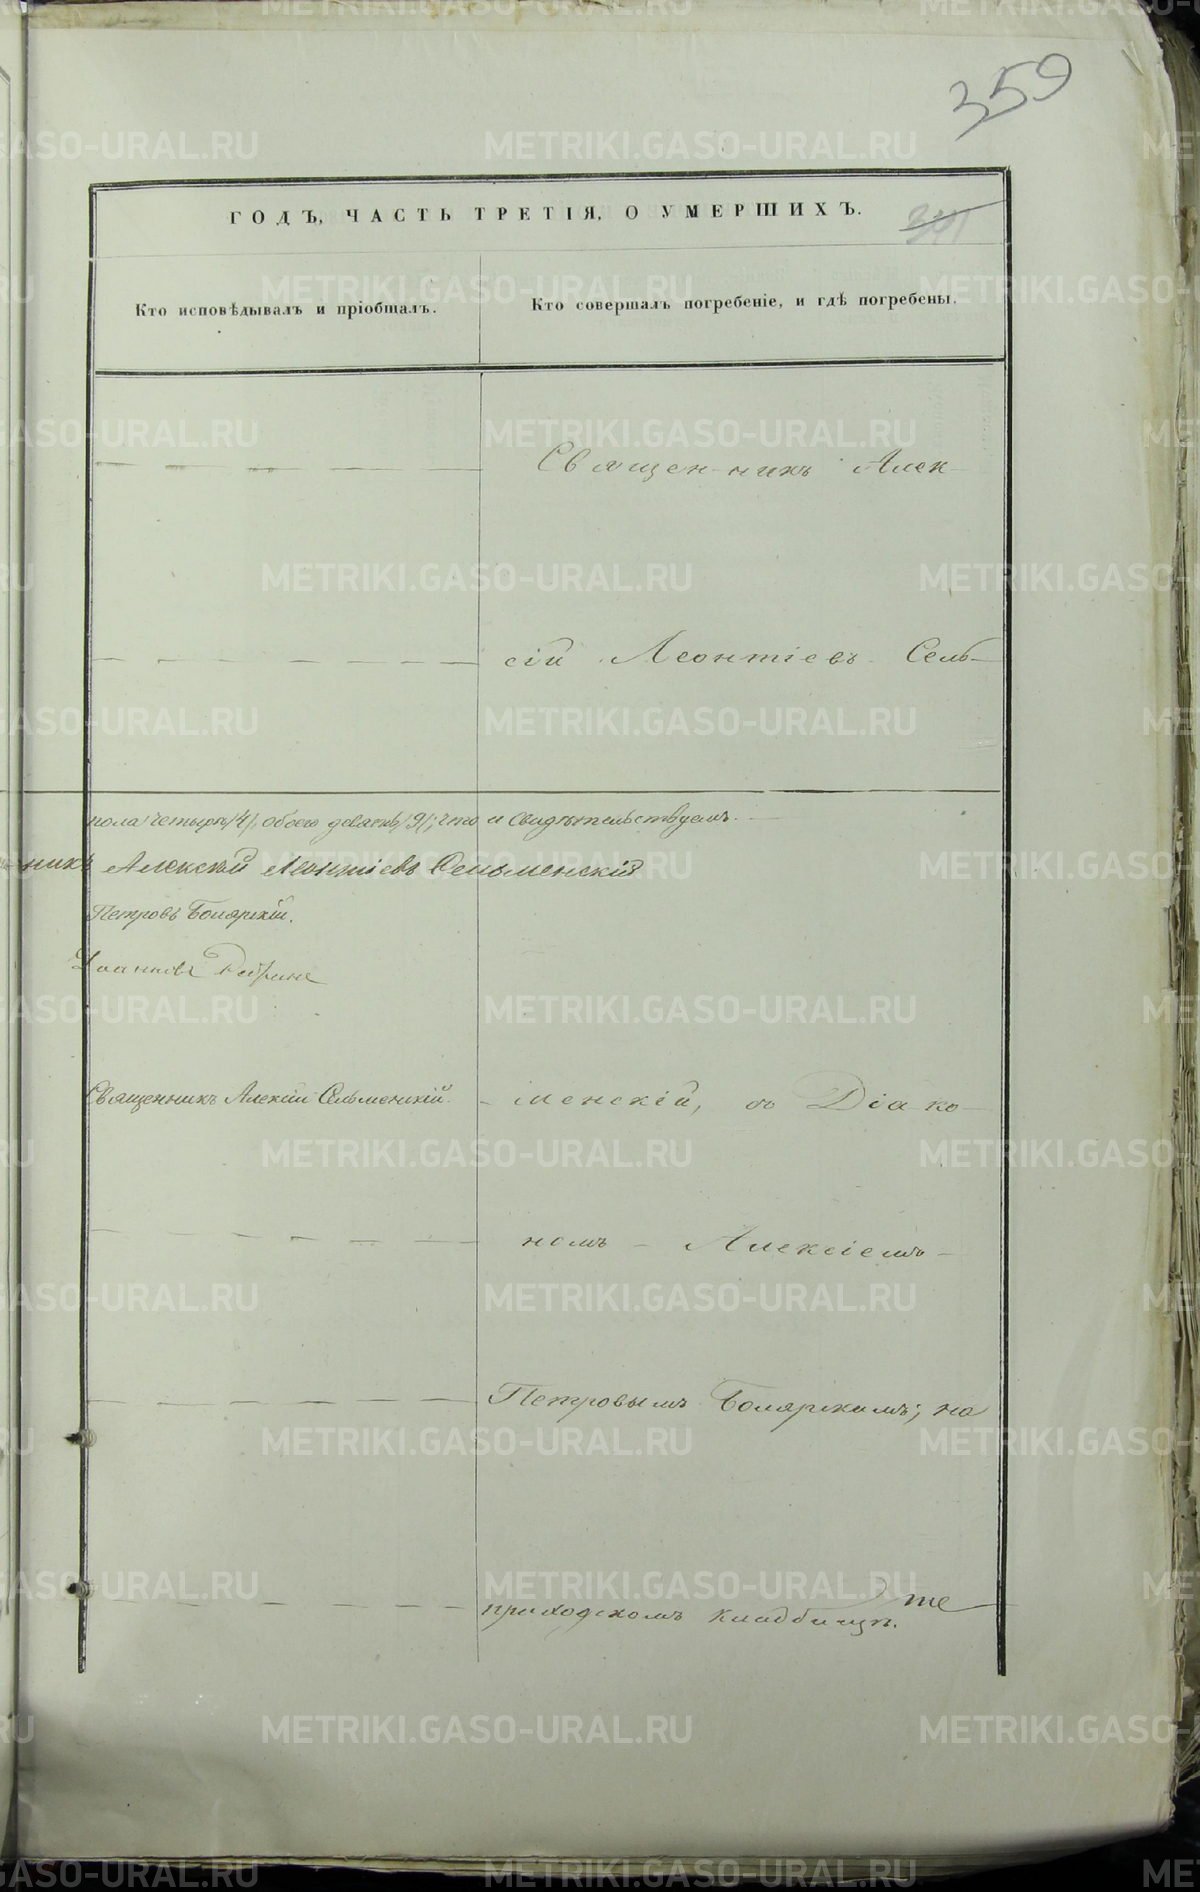 359
ГОДЪ, ЧАСТЬ ТРЕТІЯ, О УМЕРШИХЪ.
Кто исповѣдывалъ и пріобщалъ.
Кто совершалъ погребеніе, и гдѣ погребены.
Священникъ Алек
сій Леонтіевъ Сель-
пола четыре /4/, обоего девять /9/; что и свидѣтельствуемъ.
никъ Алексій Леонтіевъ Сельменскій
Петровъ Боярскій.
Іоанновъ
Священникъ Алексій Сельменскій.
- менскій, съ Діако-
номъ - Алексіемъ -
Петровымъ Боярскимъ; на
приходскомъ кладбищѣ.
METRIKI.GASO-URAL.RU